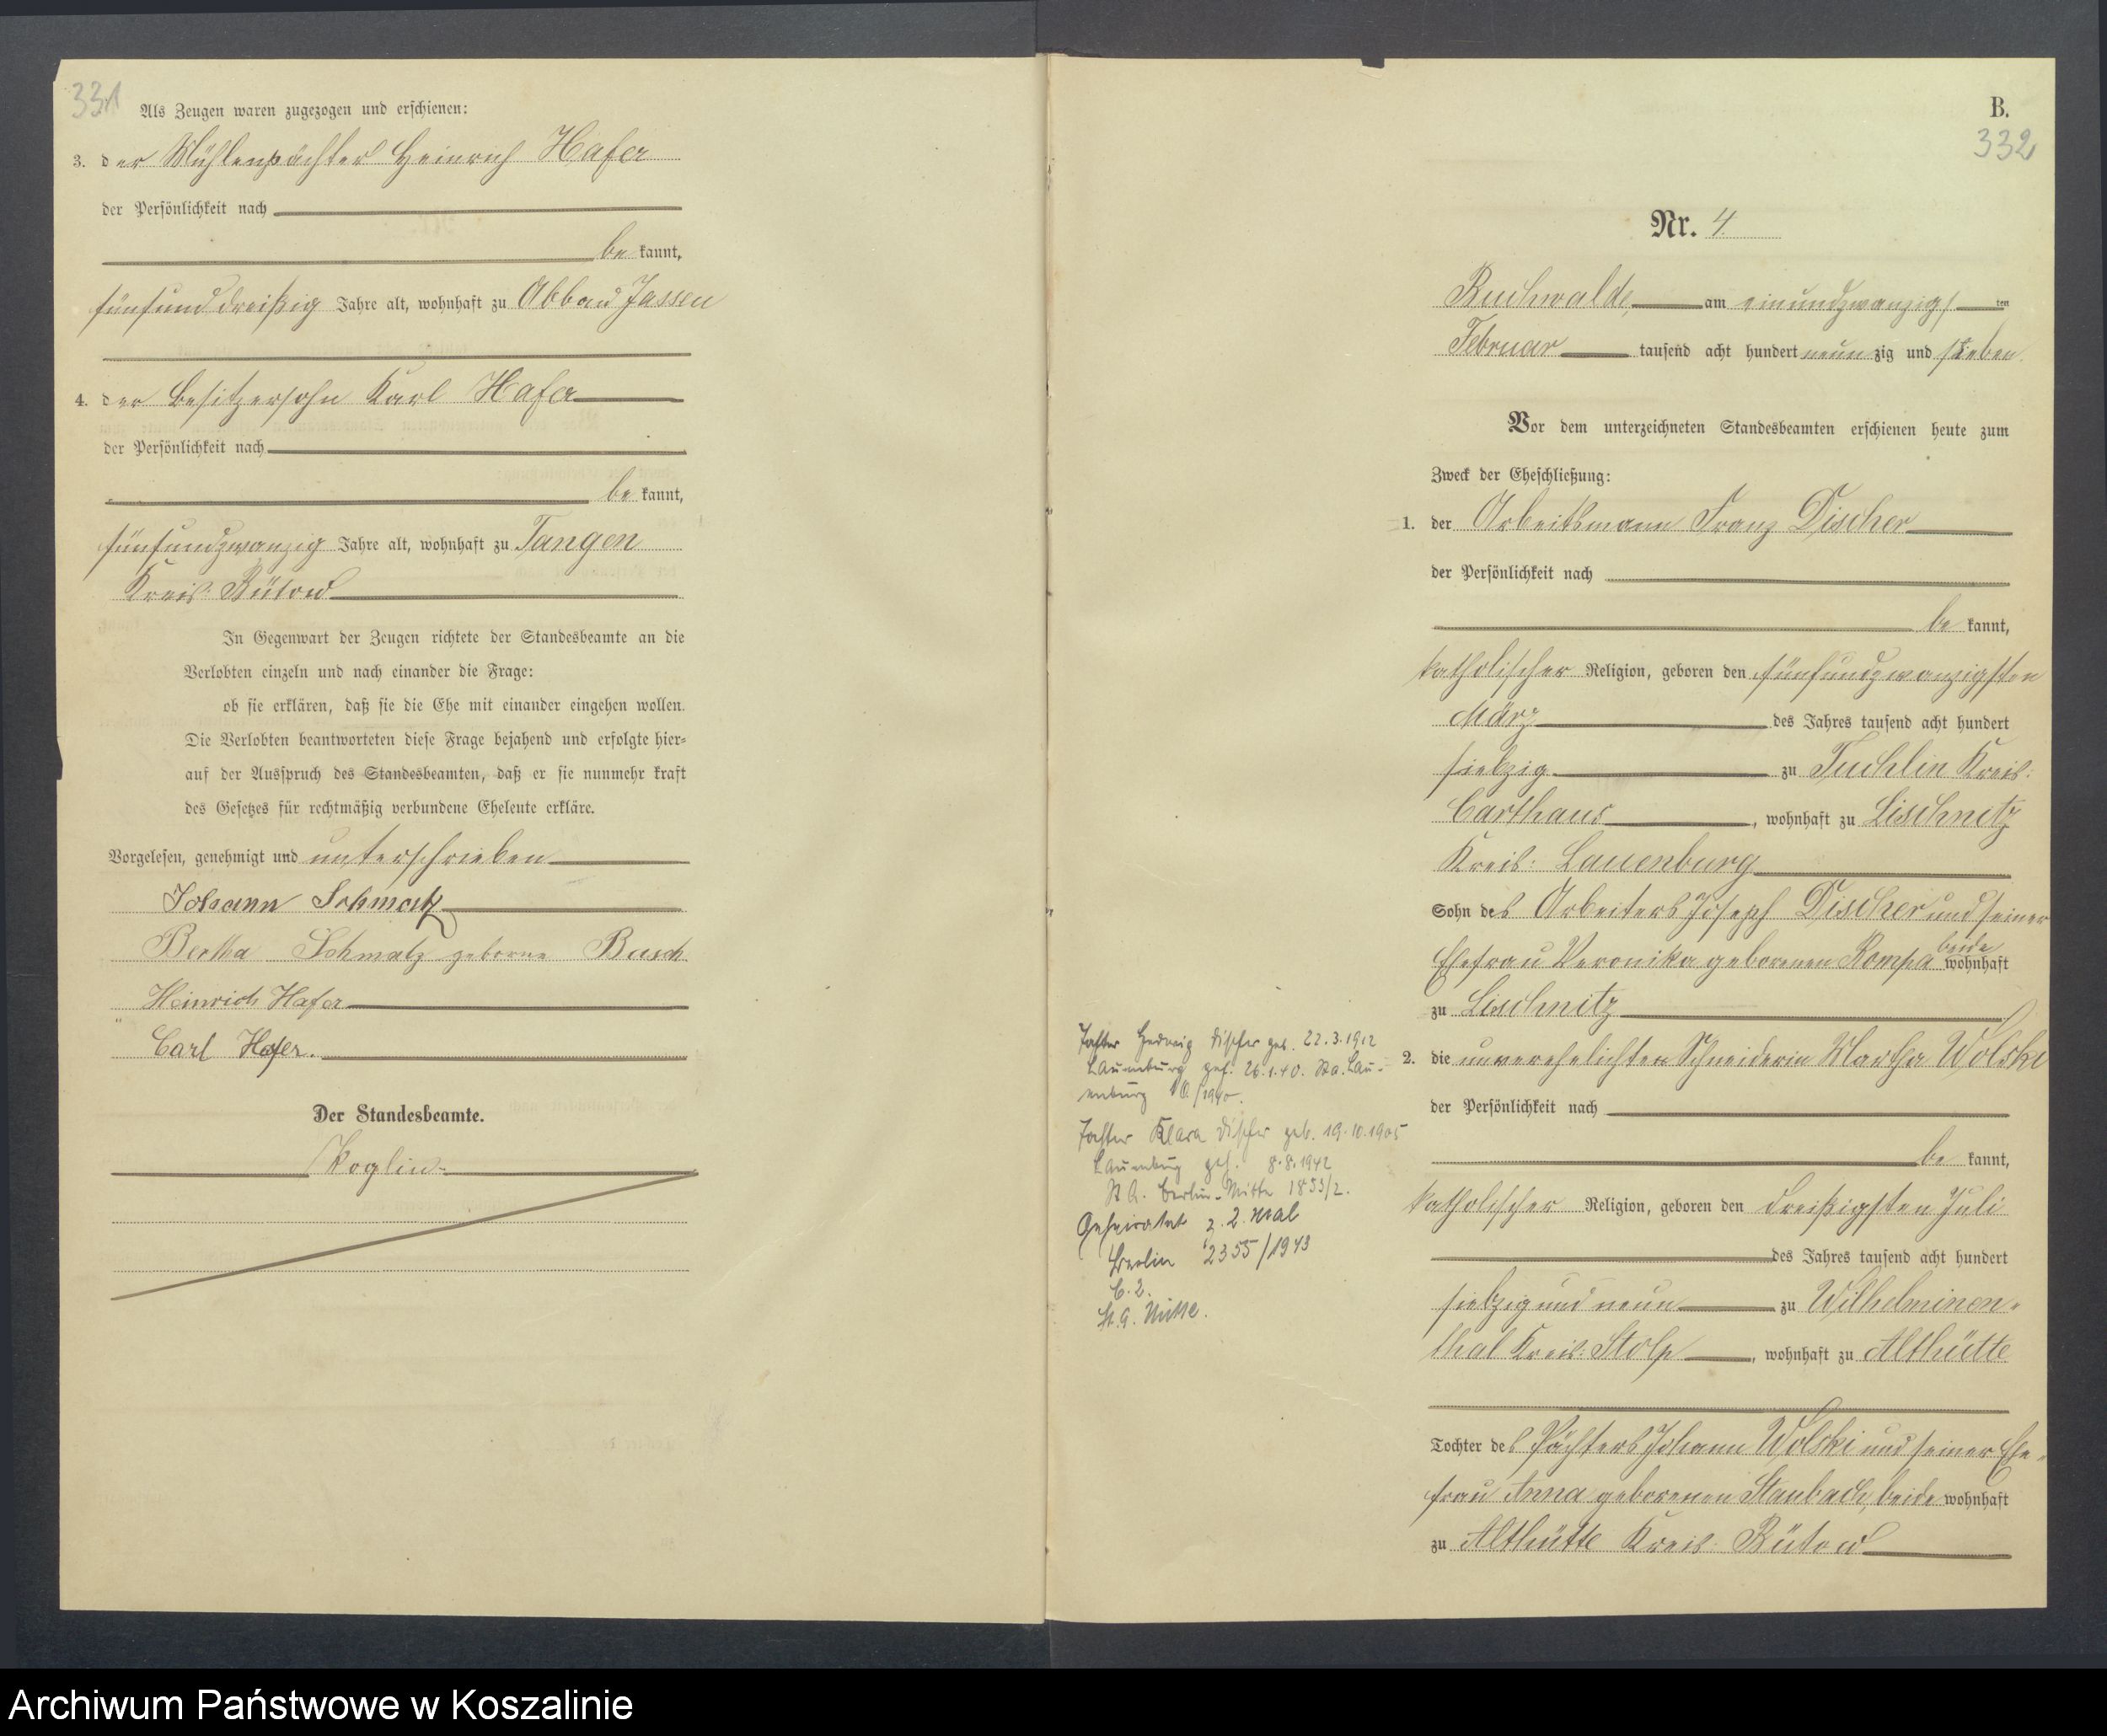 331
Als Zeugen waren zugezogen und erschienen:
3. der Mühlenpächter Heinrich Hafer
der Persönlichkeit nach
be kannt,
fünfunddreißig Jahre alt, wohnhaft zu Abbau Jassen
4. der Besitzersohn Karl Hafer
der Persönlichkeit nach
be kannt,
fünfundzwanzig Jahre alt, wohnhaft zu Tangen
Kreis: Bütow
In Gegenwart der Zeugen richtete der Standesbeamte an die
Verlobten einzeln und nach einander die Frage:
ob sie erklären, daß sie die Ehe mit einander eingehen wollen.
Die Verlobten beantworteten diese Frage bejahend und erfolgte hier-
auf der Ausspruch des Standesbeamten, daß er sie nunmehr kraft
des Gesetzes für rechtmäßig verbundene Eheleute erkläre.
Vorgelesen, genehmigt und unterschrieben
Johann Schmatz
Bertha Schmatz geborne Busch
Heinrich Hafer
Carl Hafer.
Der Standesbeamte.
Koglin
B.
332
Nr. 4.
Buchwalde, am einundzwanzigs ten
Februar tausend acht hundert neun zig und sieben.
Vor dem unterzeichneten Standesbeamten erschienen heute zum
Zweck der Eheschließung:
1. der Arbeitsmann Franz Discher
der Persönlichkeit nach
be kannt,
katholischer Religion, geboren den fünfundzwanzigsten
März des Jahres tausend acht hundert
siebzig zu Tuchlin Kreis:
Carthaus, wohnhaft zu Lischnitz
Kreis: Lauenburg
Sohn des Arbeiters Joseph Discher und seiner
Ehefrau Veronika geborenen Rompa beide wohnhaft
zu Lischnitz
2. die unverehelichten Schneiderin Martha Wolski
der Persönlichkeit nach
be kannt,
katholischer Religion, geboren den dreißigsten Juli
des Jahres tausend acht hundert
siebzig und neun zu Wilhelminen-
thal Kreis: Stolp, wohnhaft zu Althütte
Tochter des Pächters Johann Wolski und seiner Ehe-
frau Anna geborenen Staubach, beide wohnhaft
zu Althütte Kreis: Bütow
Tochter Hedwig Discher geb. 22.3.1912
Lauenburg geh. 26.1.40. Sta. Lau-
enburg /1940.
Tochter Klara Discher geb. 19.10.1905
Lauenburg geh. 8.8.1942
St A. Berlin-Mitte 1833/2.
Geheiratet z. 2. Mal
Berlin 2355/1943
C. 2.
St. A. Mitte.
Archiwum Państwowe w Koszalinie